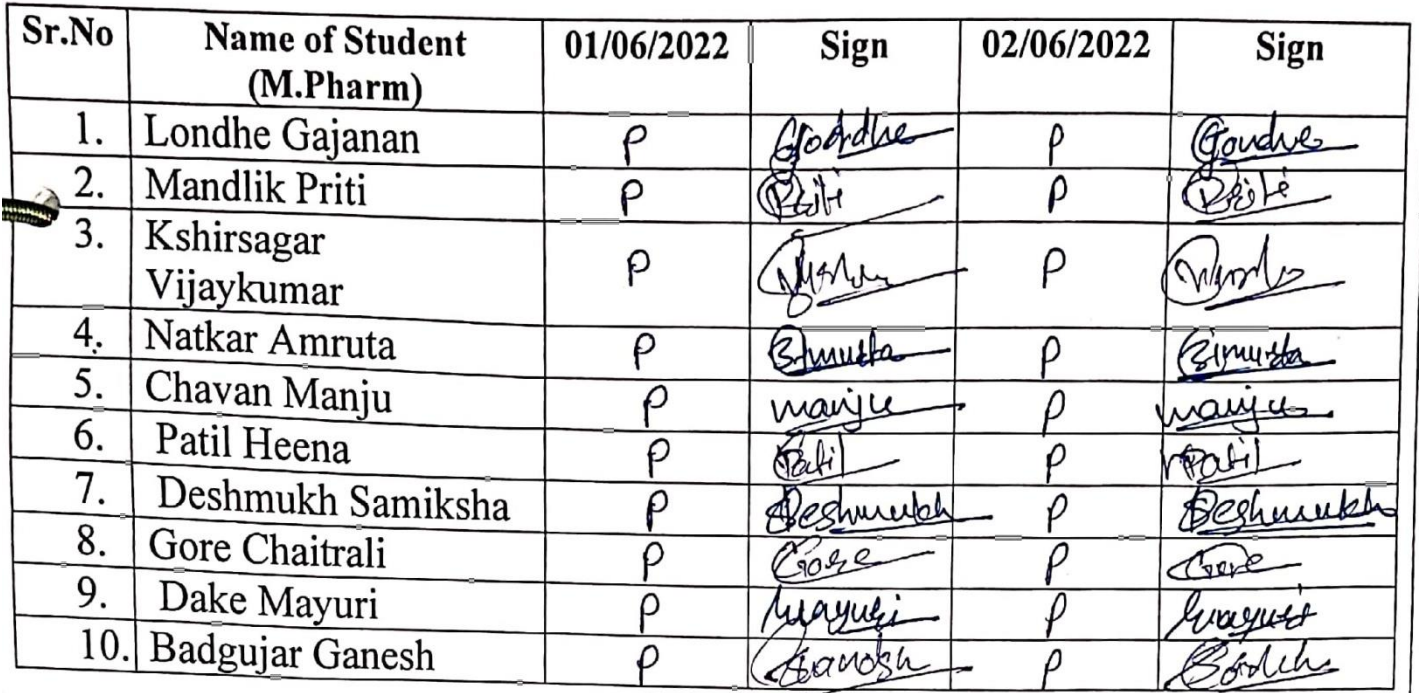 Sr.No Name of Student 01/06/2022 Sign 02/06/2022 Sign
(M.Pharm)
1. Londhe Gajanan P P
2. Mandlik Priti P Priti P Priti
3. Kshirsagar P P
Vijaykumar
4. Natkar Amruta P P
5. Chavan Manju P manju P manju
6. Patil Heena P Patil P Patil
7. Deshmukh Samiksha P Deshmukh P Deshmukh
8. Gore Chaitrali P Gore P Gore
9. Dake Mayuri P Mayuri P Mayuri
10. Badgujar Ganesh P Ganesh P